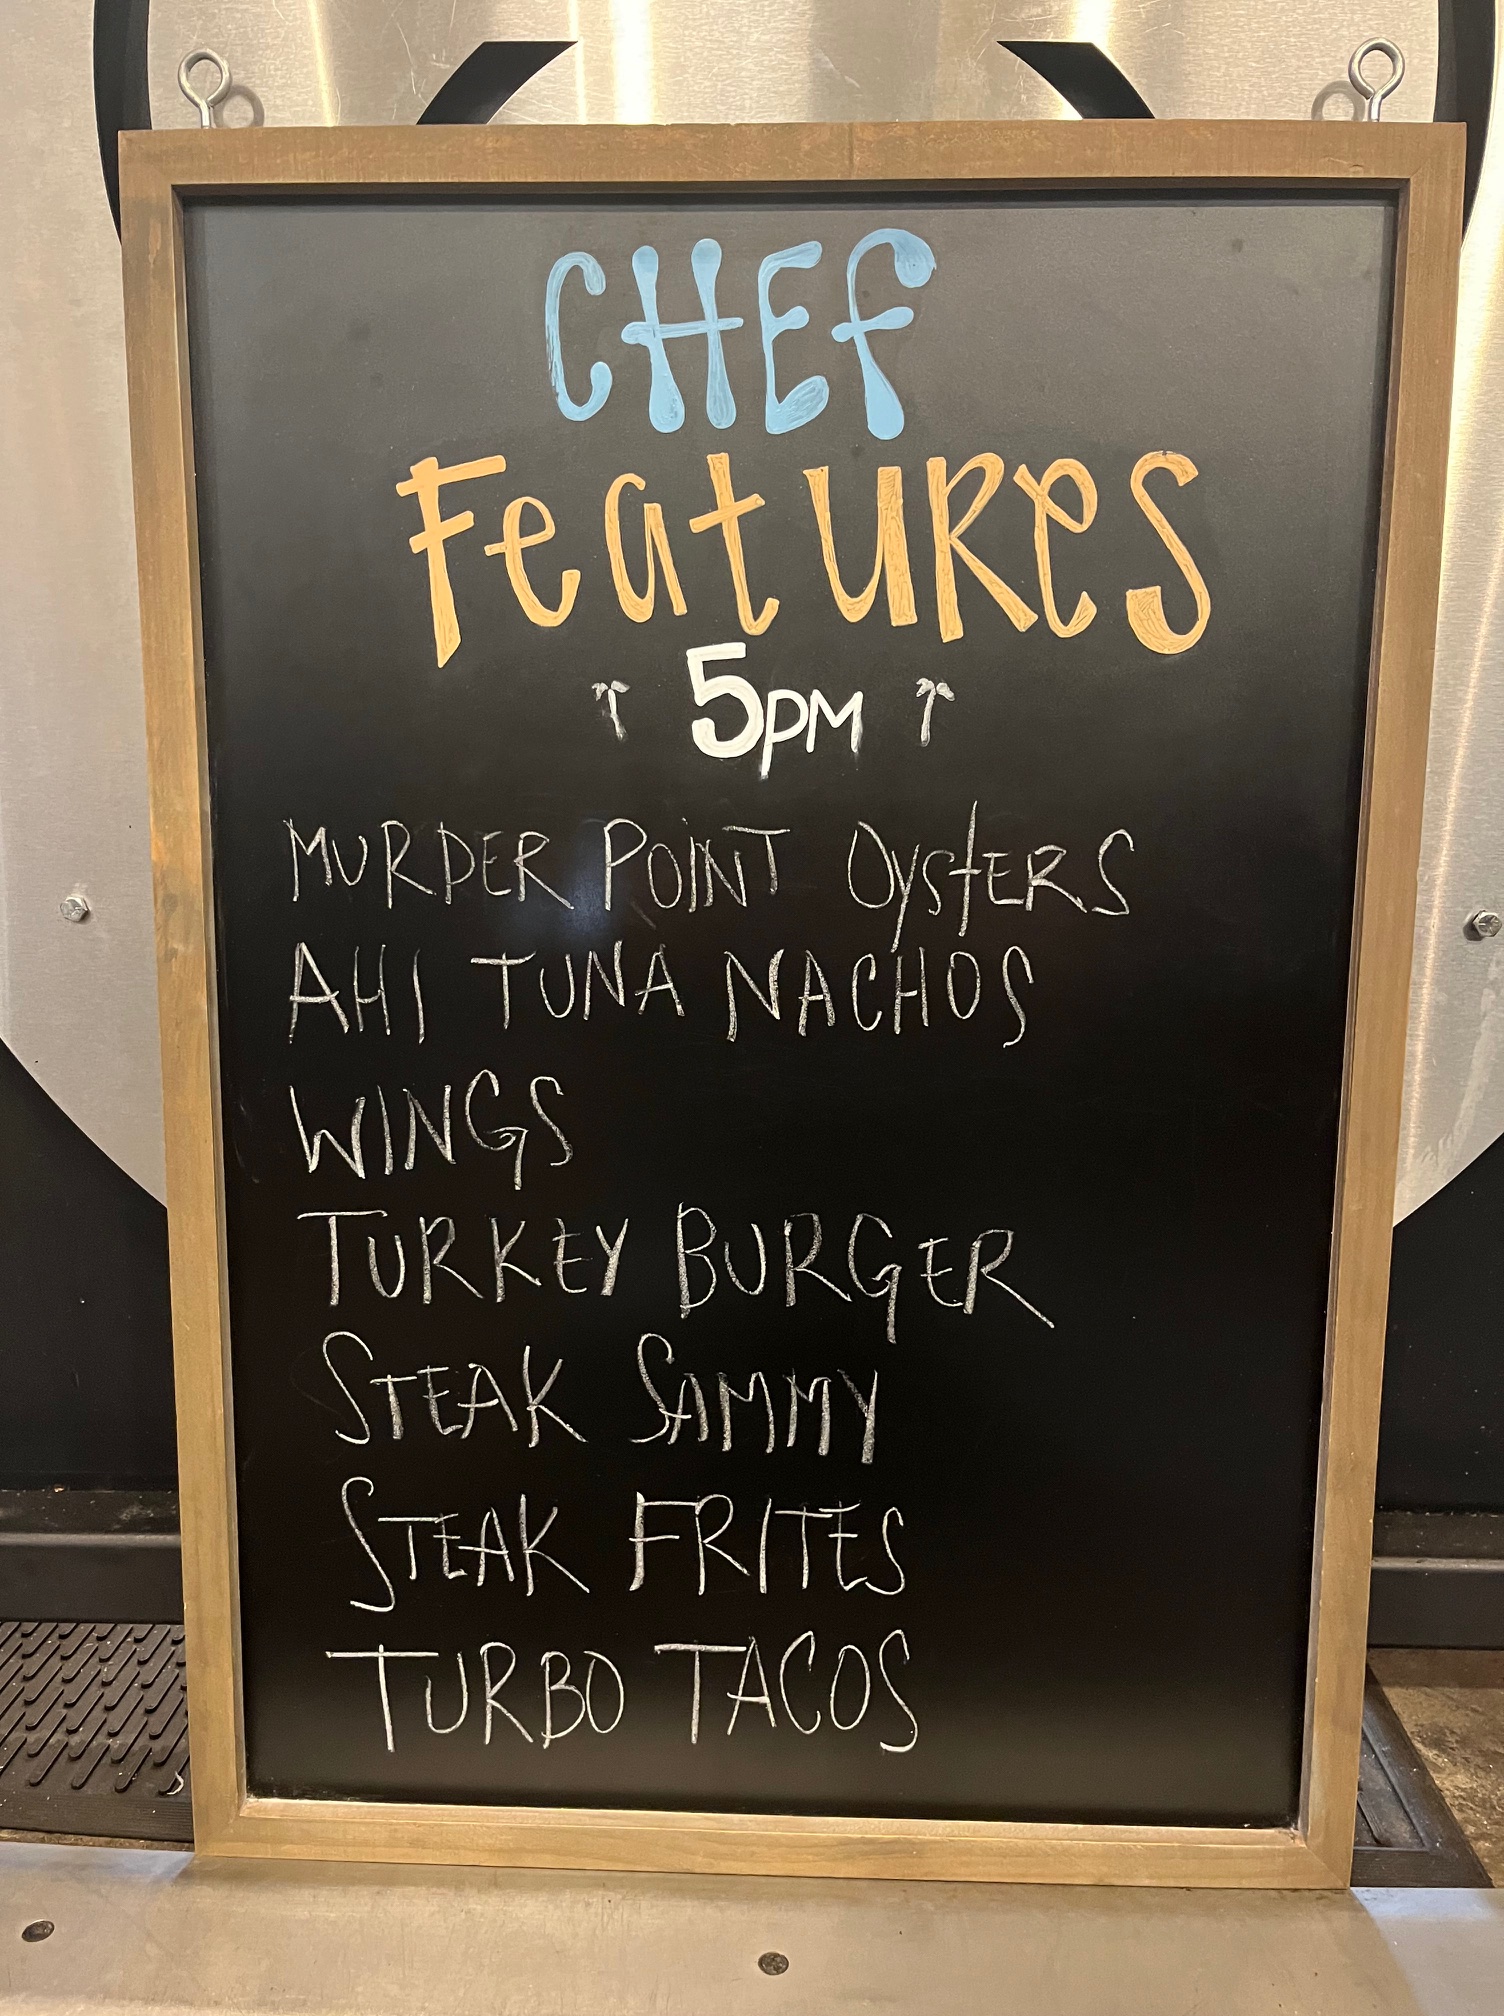 CHEF
FeatURes
5PM
MURDER POINT OystERS
AHI TUNA NACHOS
WINGS
TURKEY BURGER
STEAK SAMMY
STEAK FRITES
TURBO TACOS